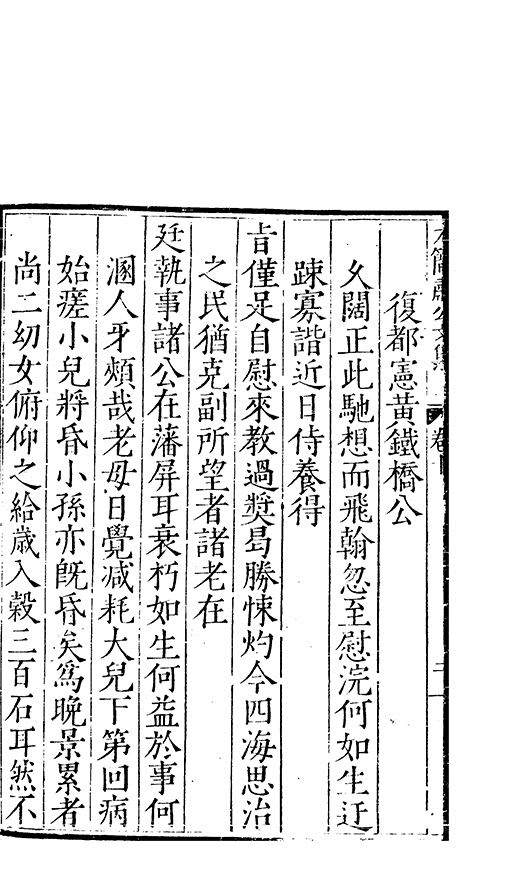 復都憲黃鐵橋公
乆闊正此馳想而飛翰忽至慰浣何如生迂
踈寡諧近日侍養得
㫖僅足自慰來教過獎曷勝悚灼今四海思治
之民猶克副所望者諸老在
廷執事諸公在藩屏耳衰朽如生何益於事何
溷人牙頰哉老母日覺減耗大兒下第回病
始瘥小兒將昏小孫亦旣昏矣爲晩景累者
尚二幼女俯仰之給歳入榖三百石耳然不